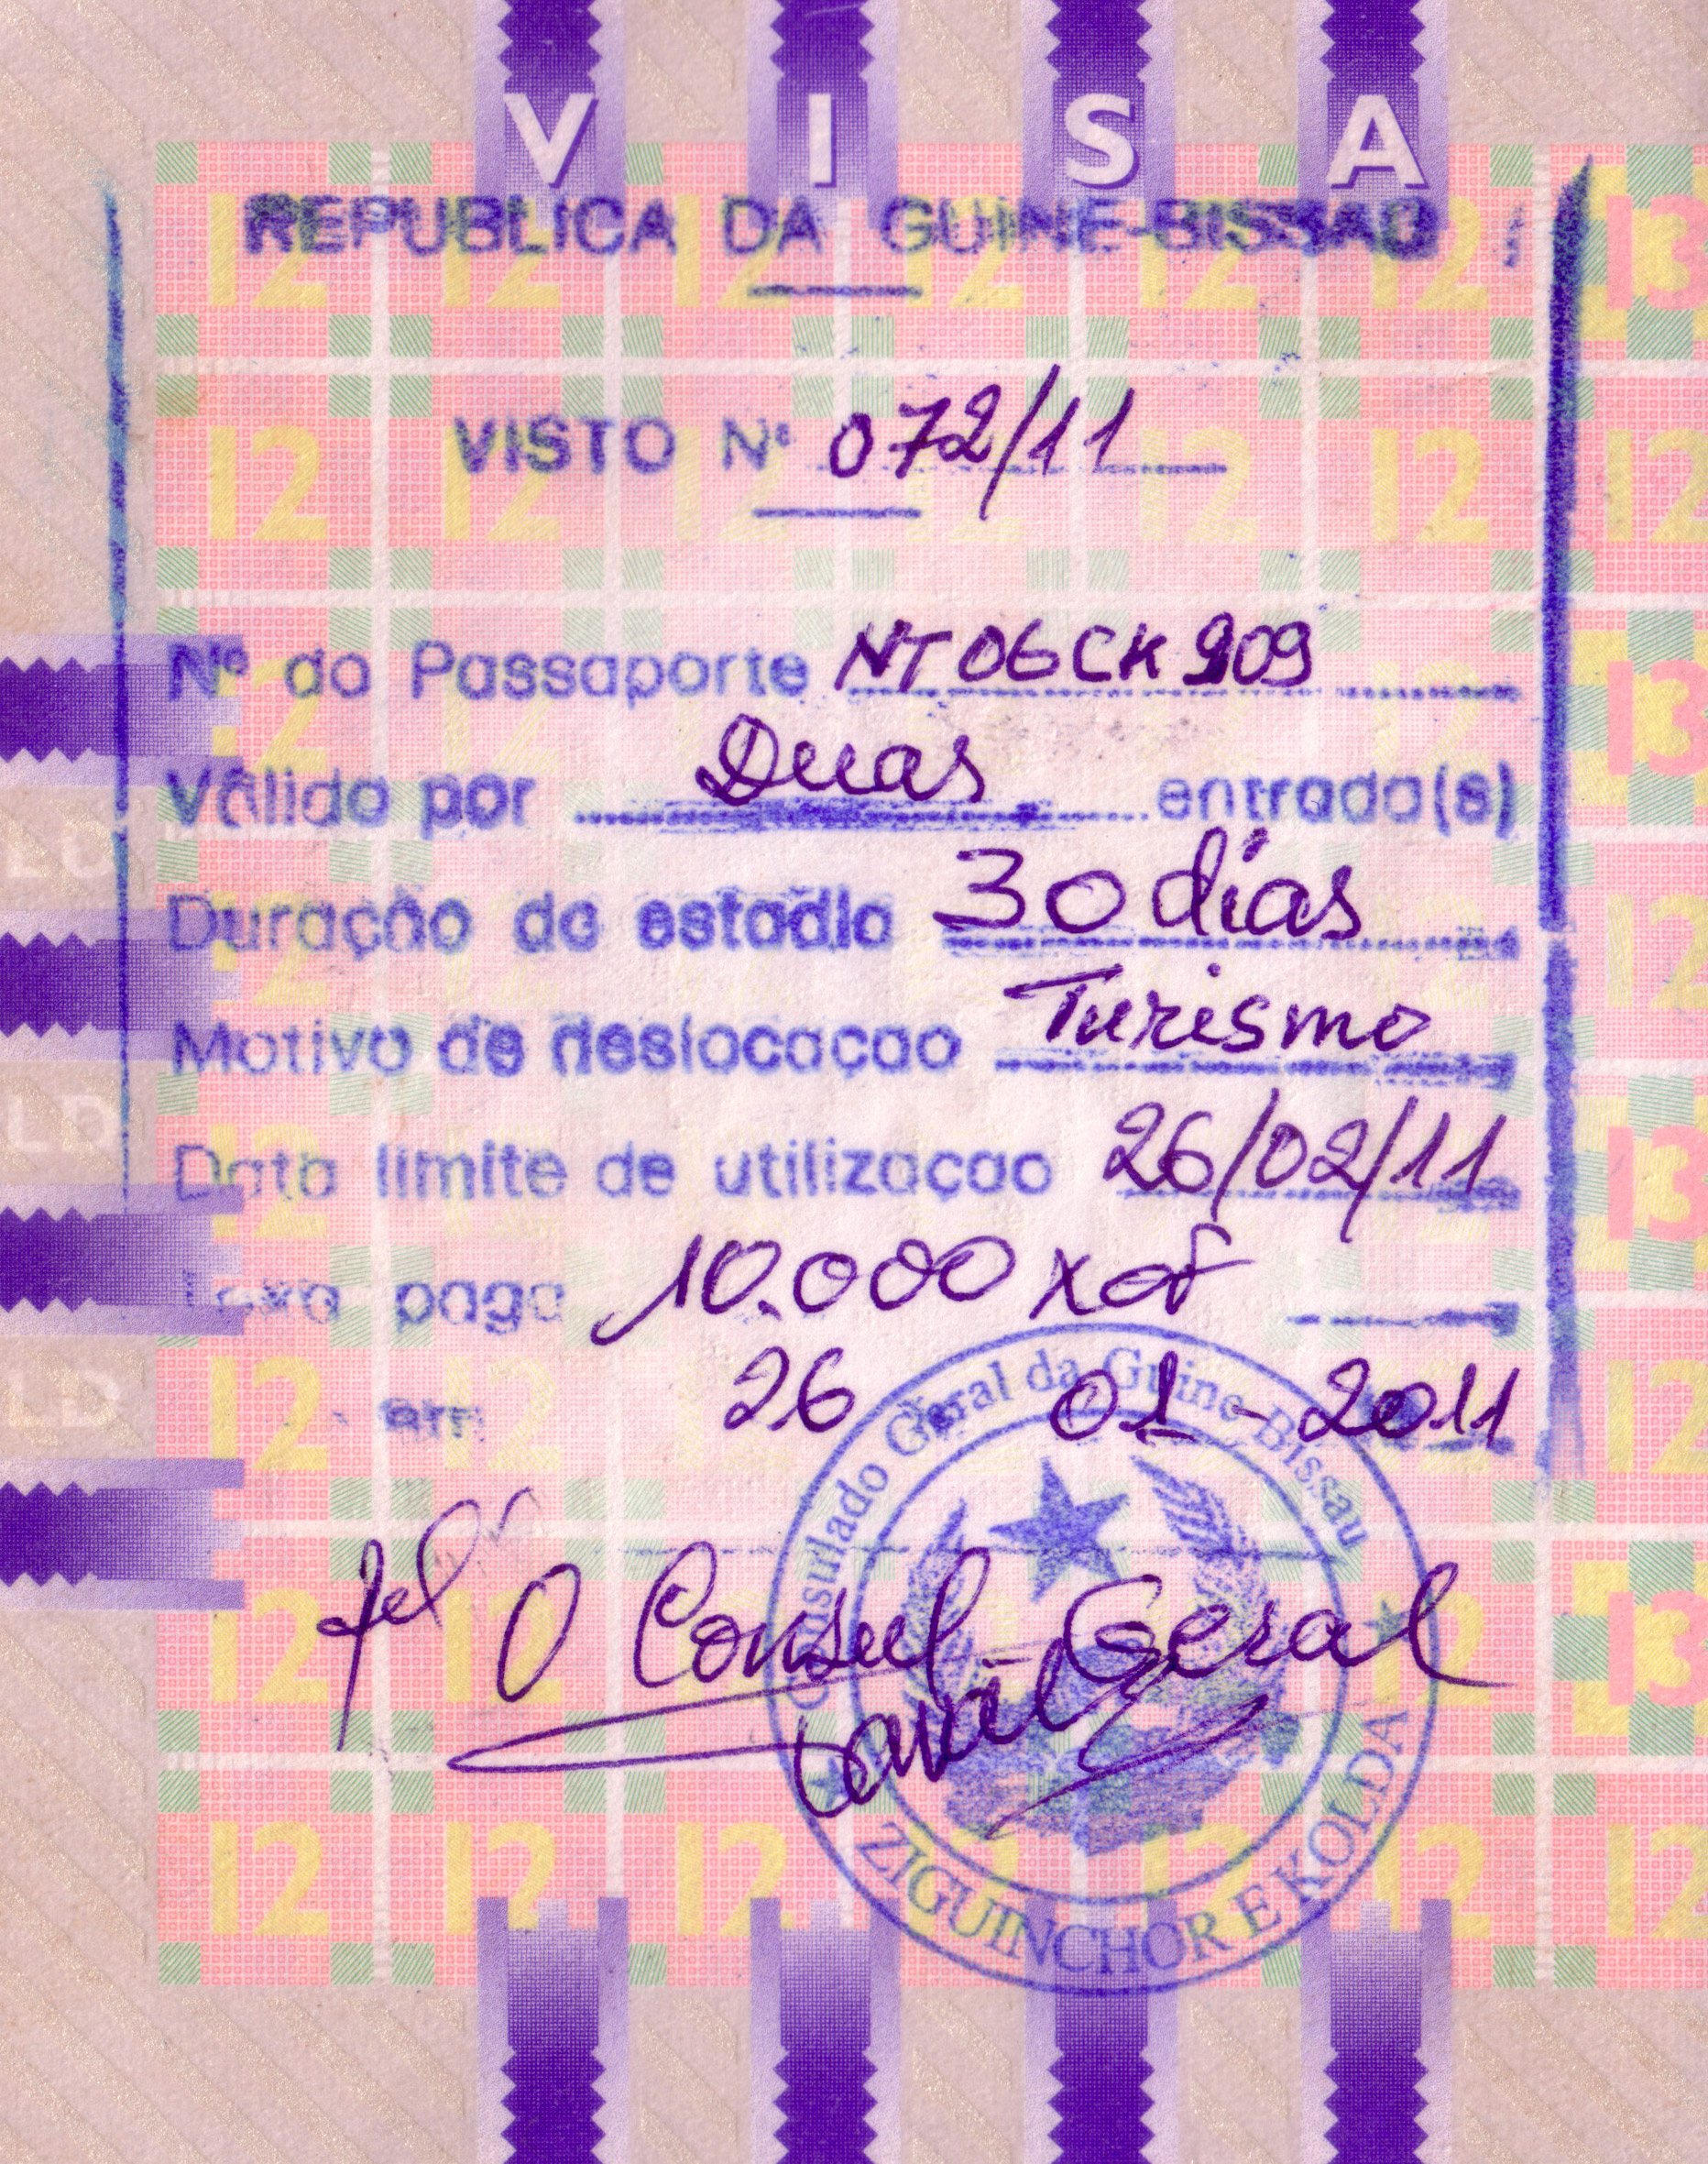 VISA
REPUBLICA DA GUINE-BISSAU
VISTO Nº 072/11
Nº do Passaporte NT06CK909
Válido por Duas entrada(s)
Duração da estadia 30 dias
Motivo de deslocaçao Turismo
Data limite de utilizaçao 26/02/11
Taxa paga 10.000 xof
em 26 01-2011
Consulado Geral da Guine-Bissau
pel' O Consul-Geral
ZIGUINCHOR E KOLDA
12 12 12 12 12 12 13
LD
LD
LD